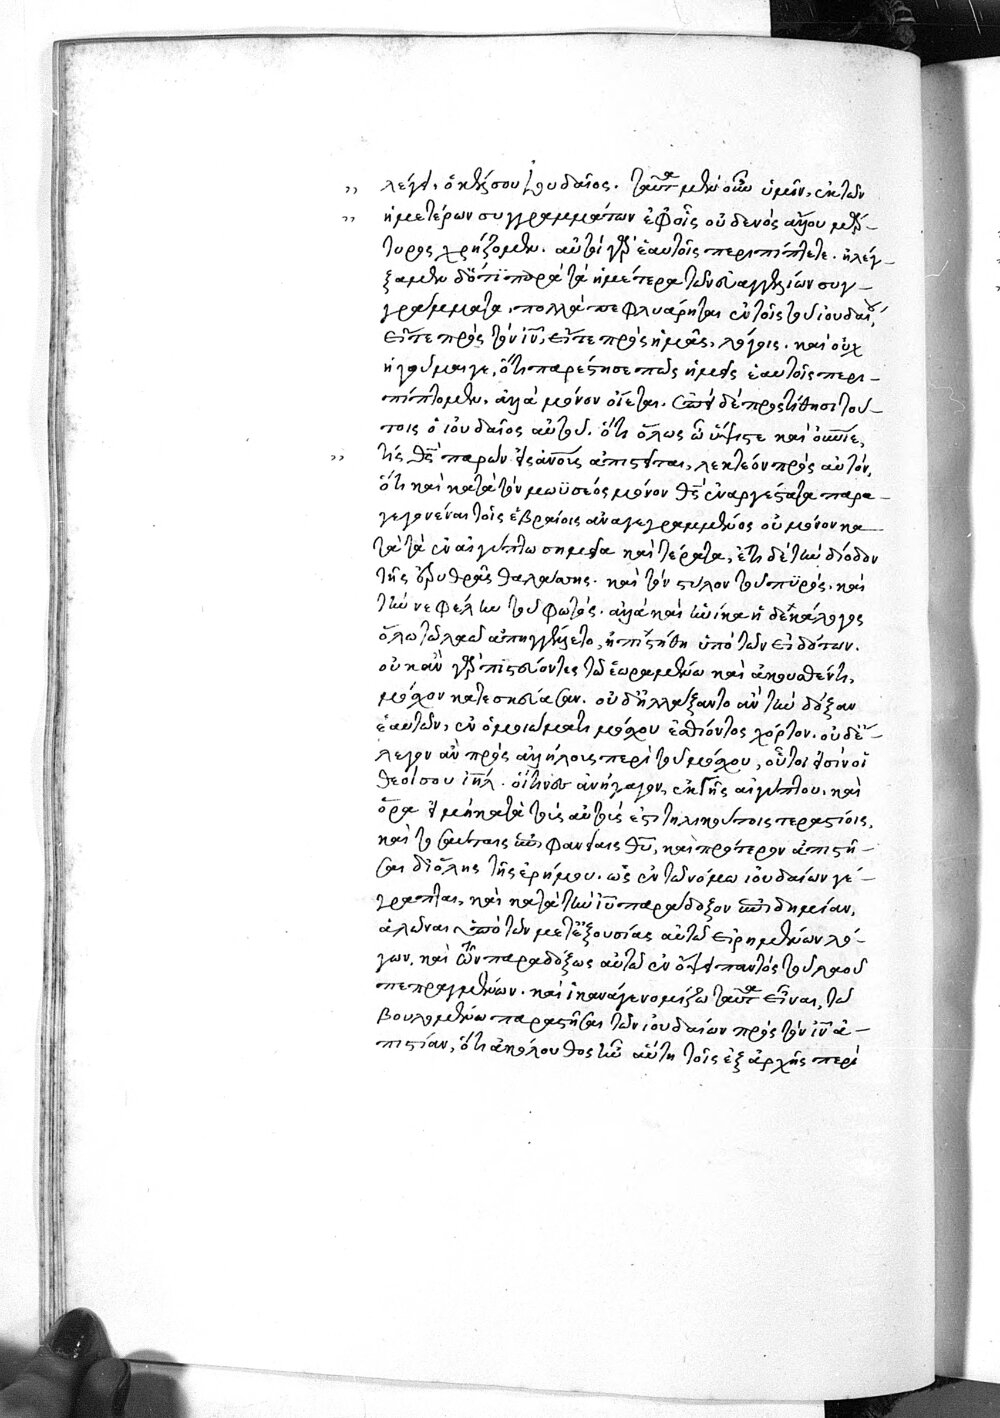 λέγει, ὁ κέλσου ἰουδαῖος. ταῦτα μὲν οὖν ὑμῖν, ἐκ τῶν
ἡμετέρων συγγραμμάτων ἐφ' οἷς οὐδενὸς ἄλλου μάρ-
τυρος χρῄζομεν. αὐτοὶ γὰρ ἑαυτοῖς περιπίπτετε. ἠλέγ-
ξαμεν δ' ὅτι παρὰ τὰ ἡμέτερα τῶν εὐαγγελίων συγ-
γράμματα, πολλὰ πεφλυάρηται ἐν τοῖς τοῦ ἰουδαίου,
εἴτε πρὸς τὸν ιν, εἴτε πρὸς ἡμᾶς, λόγοις. καὶ οὐχ
ἡγοῦμαί γε, ὅτι παρέστησε πῶς ἡμεῖς ἑαυτοῖς περι-
πίπτομεν, ἀλλὰ μόνον οἴεται. ἐπεὶ δὲ προστίθησι τού-
τοις ὁ ἰουδαῖος αὐτοῦ. ὅτι ὅλως ὦ ὕψιστε καὶ οὐράνιε,
τίς θς παρὼν εἰς ἀνους ἀπιστεῖται, λεκτέον πρὸς αὐτὸν,
ὅτι καὶ κατὰ τὸν μωϋσέος νόμον θς ἐναργέστατα παρα-
γεγονέναι τοῖς ἑβραίοις ἀναγέγραπται οὐ μόνον κα-
τὰ τὰ ἐν αἰγύπτω σημεῖα καὶ τέρατα, ἔτι δὲ τὴν δίοδον
τῆς ἐρυθρᾶς θαλάσσης. καὶ τὸν στύλον τοῦ πυρὸς. καὶ
τὴν νεφέλην τοῦ φωτός. ἀλλὰ καὶ ἡνίκα ἡ δεκάλογος
ὅλω τῶ λαῶ ἀπηγγέλλετο, ἠπιστήθη ὑπὸ τῶν εἰδότων.
οὐκ ἂν γὰρ πιστεύοντες τῶ ἑωραμένω καὶ ἀκουσθέντι,
μόσχον κατεσκεύασαν. οὐδ' ἠλλάξαντο ἂν τὴν δόξαν
ἑαυτῶν, ἐν ὁμοιώματι μόσχου ἐσθίοντος χόρτον. οὐδ' ἔ-
λεγον ἂν πρὸς ἀλλήλους περὶ τοῦ μόσχου, οὗτοι εἰσὶν οἱ
θεοί σου ιηλ. οἵτινες ἀνήγαγον ἐκ γῆς αἰγύπτου. καὶ
ὅρα εἰ μὴ κατὰ τοὺς αὐτούς ἐστι τηλικούτοις τεραστίοις,
καὶ τοσαύταις ἐπιφανείαις θυ, καὶ πρότερον ἀπιστῆ-
σαι δι' ὅλης τῆς ἐρήμου. ὡς ἐν τῶ νόμω ἰουδαίων γέ-
γραπται, καὶ κατὰ τὴν ιυ παράδοξον ἐπιδημίαν,
ἁλῶναι ὑπὸ τῶν μετ' ἐξουσίας αὐτῶ εἰρημένων λό-
γων, καὶ τῶν παραδόξως αὐτῶ ἐν ὄψει παντὸς τοῦ λαοῦ
πεπραγμένων. καὶ ἱκανά γε νομίζω ταῦτα εἶναι, τῶ
βουλομένω παραστῆσαι τὴν ἰουδαίων πρὸς τὸν ιν ἀ-
πιστίαν, ὅτι ἀκόλουθος ἦν αὕτη τοῖς ἐξ ἀρχῆς περὶ